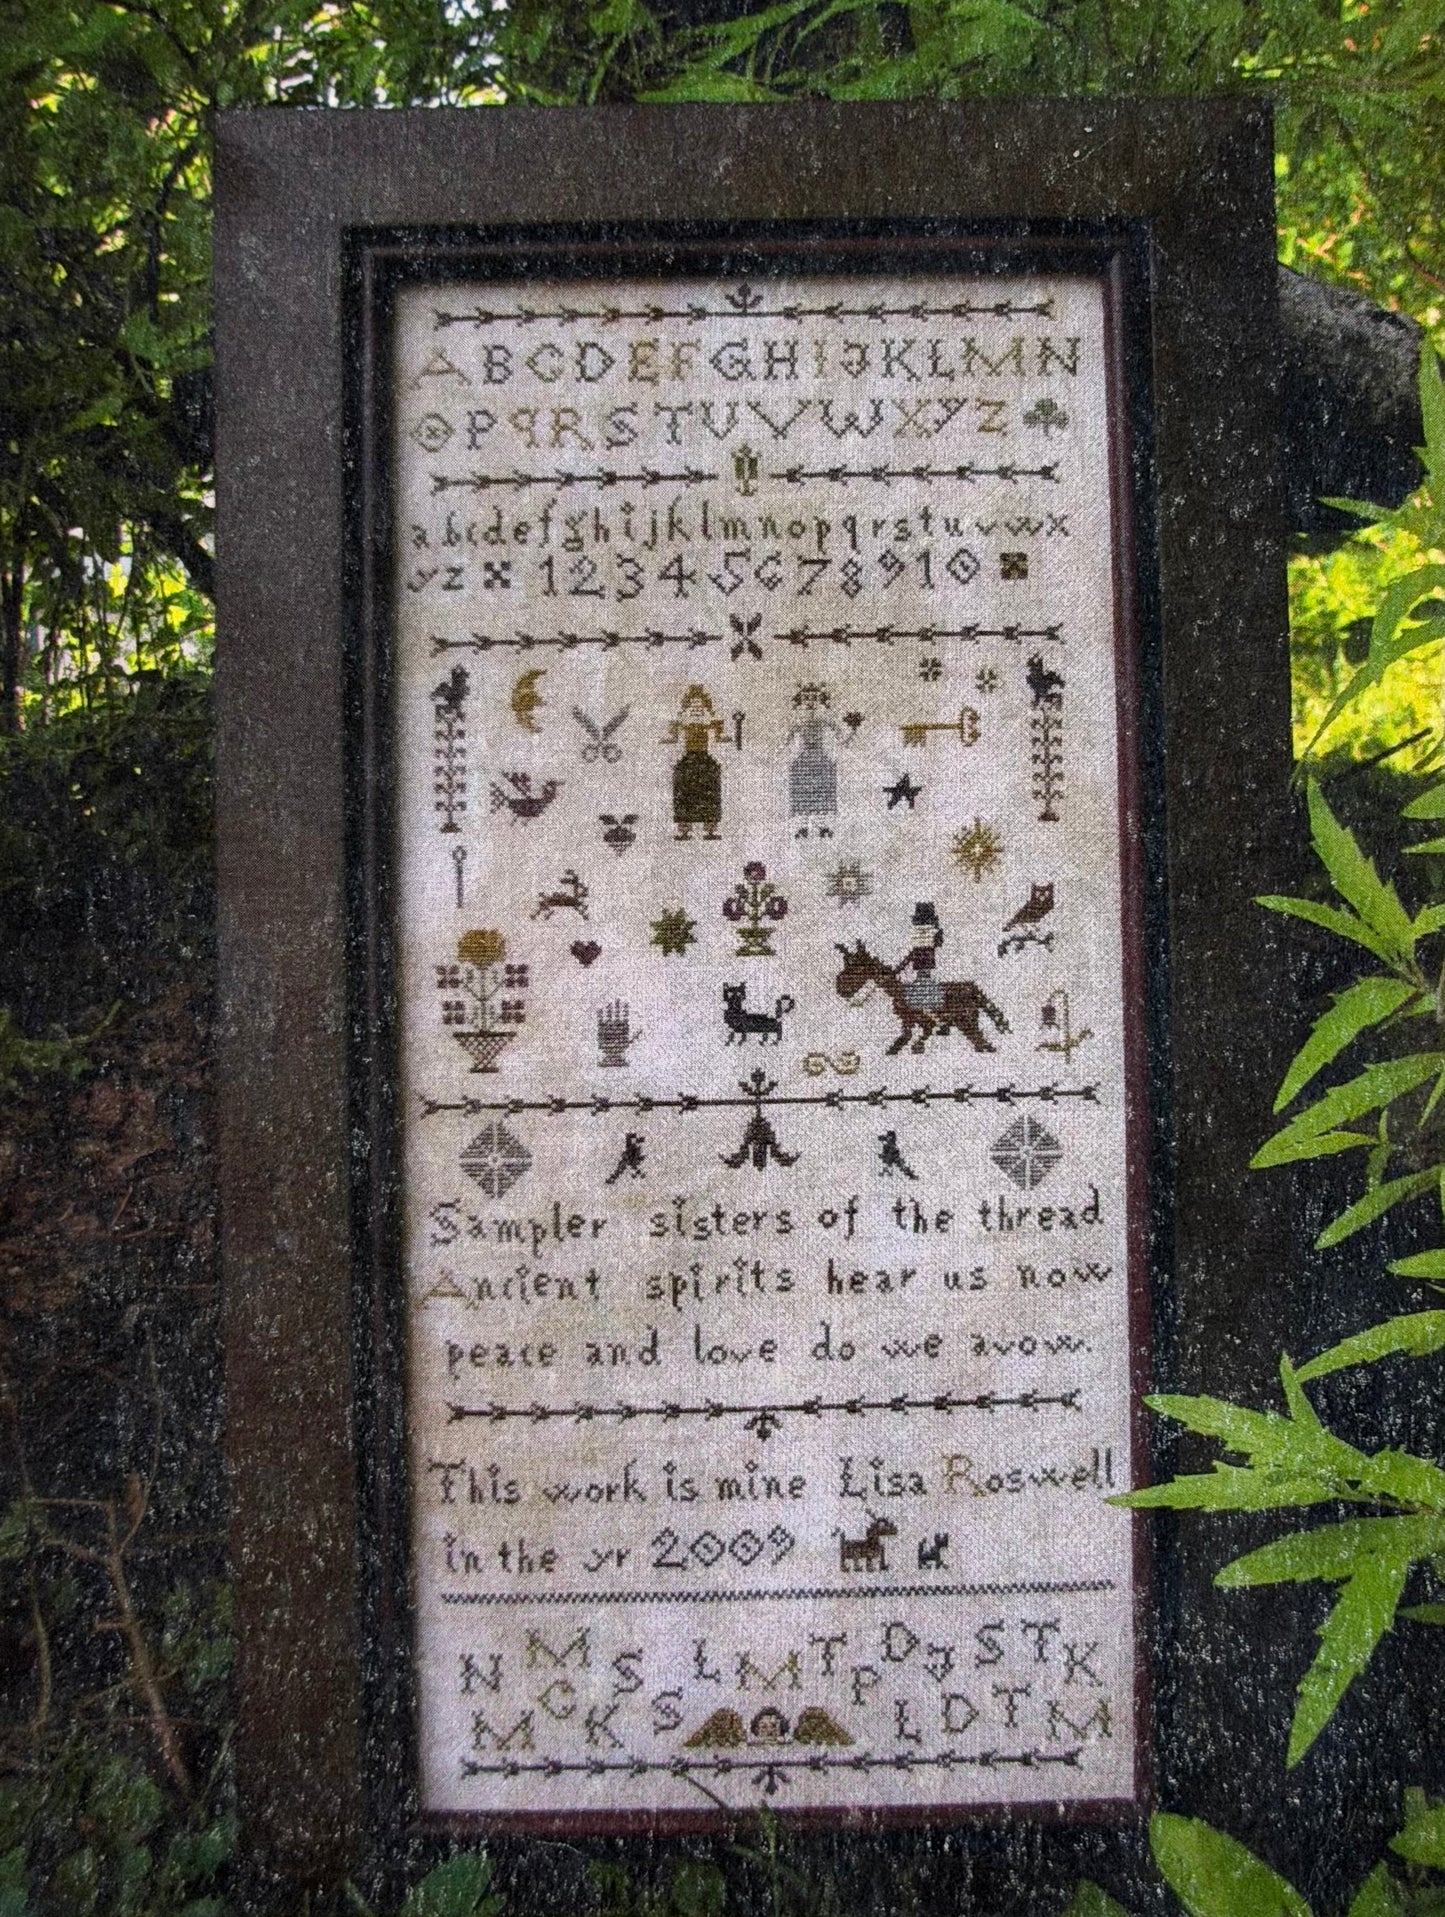 ABCDEFGHIJKLMN
OPQRSTUVWXYZ
abcdefghijklmnopqrstuvwx
yz 12345678910
Sampler sisters of the thread
Ancient spirits hear us now
peace and love do we avow.
This work is mine Lisa Roswell
in the yr 2009
N M S L M T P D J S T K
M G K S L D T M